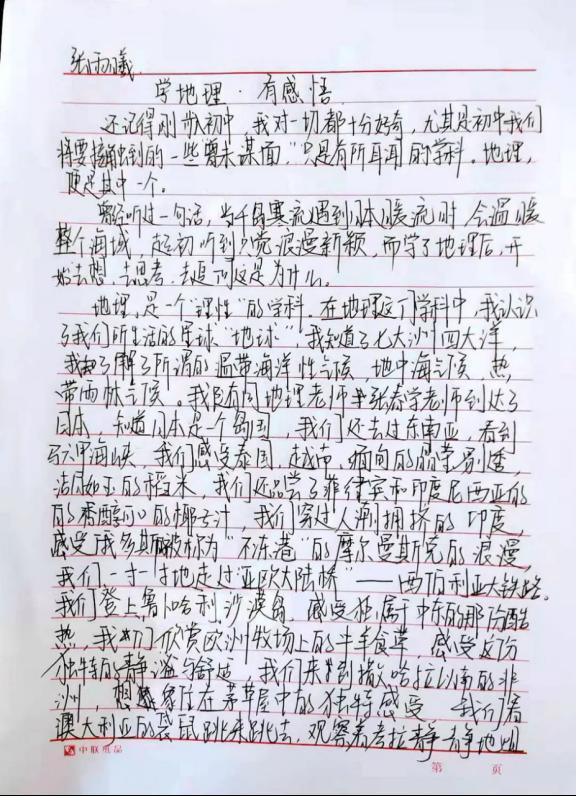 张雨曦
学地理·有感悟
还记得刚步入初中，我对一切都十分好奇，尤其是初中我们
将要接触到的一些“素未谋面”，只是有所耳闻的学科。地理，
便是其中一个。
曾经听过一句话，当千岛寒流遇到日本暖流时，会温暖
整个海域，起初听到只觉浪漫新颖，而学了地理后，开
始去想，去思考，去追问这是为什么。
地理，是一个“理性”的学科。在地理这门学科中，我认识
了我们所生活的星球“地球”，我知道了七大洲四大洋，
我了解了所谓的温带海洋性气候，地中海气候，热
带雨林气候。我跟着地理老师张春学老师到达了
日本，知道日本是一个岛国，我们还去过东南亚，看到
马六甲海峡，我们感受泰国，越南，缅甸的晶莹剔透，
洁白如玉的稻米，我们还品尝了菲律宾和印度尼西亚的
的香醇可口的椰子汁，我们穿过人潮拥挤的印度，
感受俄罗斯被称为“不冻港”的摩尔曼斯克的浪漫，
我们一寸一寸地走过“亚欧大陆桥”——西伯利亚大铁路。
我们登上鲁卜哈利沙漠，感受独属于中东的那份酷
热，我们欣赏欧洲牧场上的牛羊食草，感受这份
独特的静谧与舒适，我们来到撒哈拉以南的非
洲，想象住在茅草屋中的独特感受，我们看
澳大利亚的袋鼠跳来跳去，观察着考拉静静地
中联纸品
第 页